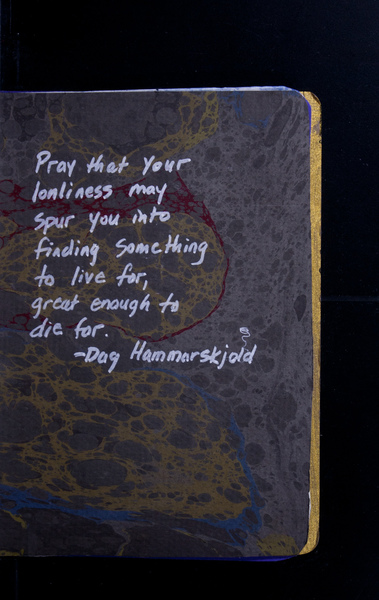 Pray that your
lonliness may
spur you into
finding something
to live for,
great enough to
die for.
-Dag Hammarskjold